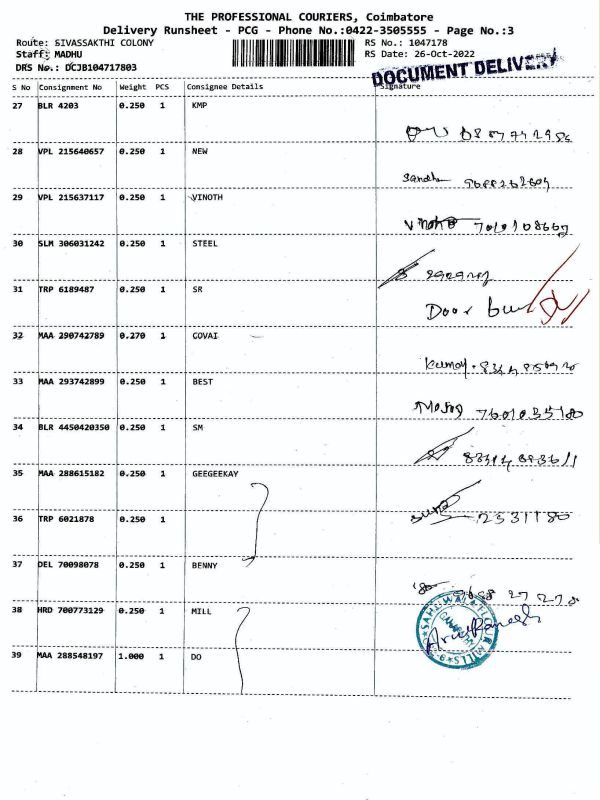 THE PROFESSIONAL COURIERS, Coimbatore
Delivery Runsheet - PCG - Phone No.:0422-3505555 - Page No.:3
Route: SIVASSAKTHI COLONY RS No.: 1047178
Staff: MADHU RS Date: 26-Oct-2022
DRS No.: DCJB104717803
DOCUMENT DELIVERY
S No Consignment No Weight PCS Consignee Details Signature
27 BLR 4203 0.250 1 KMP
28 VPL 215640657 0.250 1 NEW
Sandh
29 VPL 215637117 0.250 1 VINOTH
Vinoth
30 SLM 306031242 0.250 1 STEEL
31 TRP 6189487 0.250 1 SR
Door
32 MAA 290742789 0.270 1 COVAI
33 MAA 293742899 0.250 1 BEST
7601035180
34 BLR 4450420350 0.250 1 SM
35 MAA 288615182 0.250 1 GEEGEEKAY
36 TRP 6021878 0.250 1
2531180
37 DEL 70098078 0.250 1 BENNY
38 HRD 700773129 0.250 1 MILL
39 MAA 288548197 1.000 1 DO